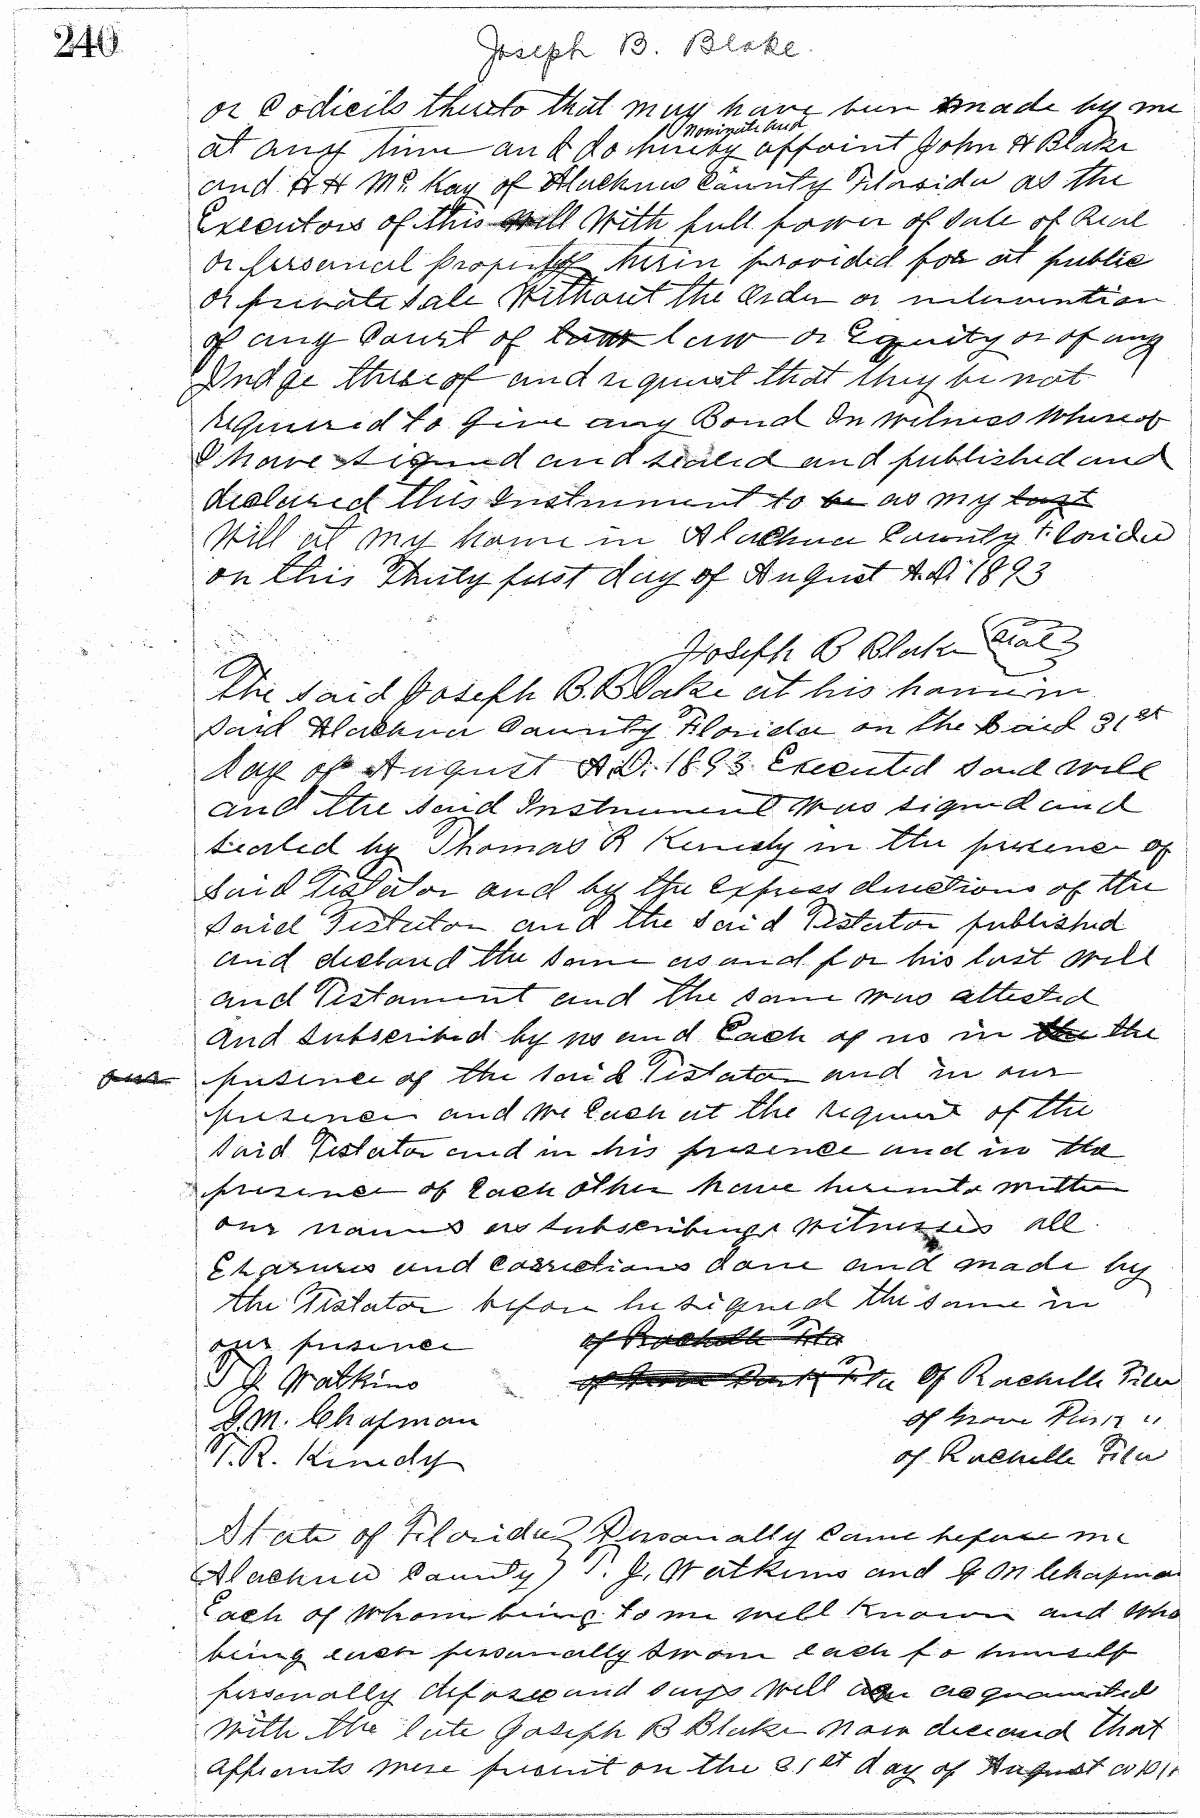 240
Joseph B. Blake.
or Codicils thereto that may have been made by me
nominate and
at any time and do hereby appoint John H Blake
and H H McKay of Alachua County Florida as the
Executors of this will With full power of sale of Real
or personal Property herin provided for at public
or private sale Without the Order or intervention
of any Court of law or Equity or of any
Judge thereof and request that they be not
required to give any Bond In witness Whereof
I have signed and sealed and published and
declared this Instrument to be as my last
Will at my home in Alachua County Florida
on this Thirty first day of August A.D. 1893
Joseph B Blake Seal
The said Joseph B. Blake at his home in
said Alachua County Florida on the said 31st
day of August A.D. 1893 Executed said will
and the said Instrument was signed and
sealed by Thomas R Kenedy in the presence of
said Testator and by the express directions of the
said Testator and the said Testator published
and declared the same as and for his last will
and Testament and the same was attested
and subscribed by us and Each of us in the the
our presence of the said Testator and in our
presence and we Each at the request of the
said Testator and in his presence and in the
presence of Each other have hereunto written
our names as subscribing witnesses all
Erasures and corrections done and made by
the Testator before he signed the same in
our presence of Rochelle Fla
T J Watkins of Grove Park Fla Of Rochelle Fla
G. M. Chapman of Grove Park "
T. R. Kenedy of Rochelle Fla
State of Florida } Personally came before me
Alachua County } T. J. Watkins and G M Chapman
Each of whom being to me well known and who
being each personally sworn each fo himself
personally depose and says well acquainted
with the late Joseph B Blake now deceased that
affiants were present on the 31st day of August